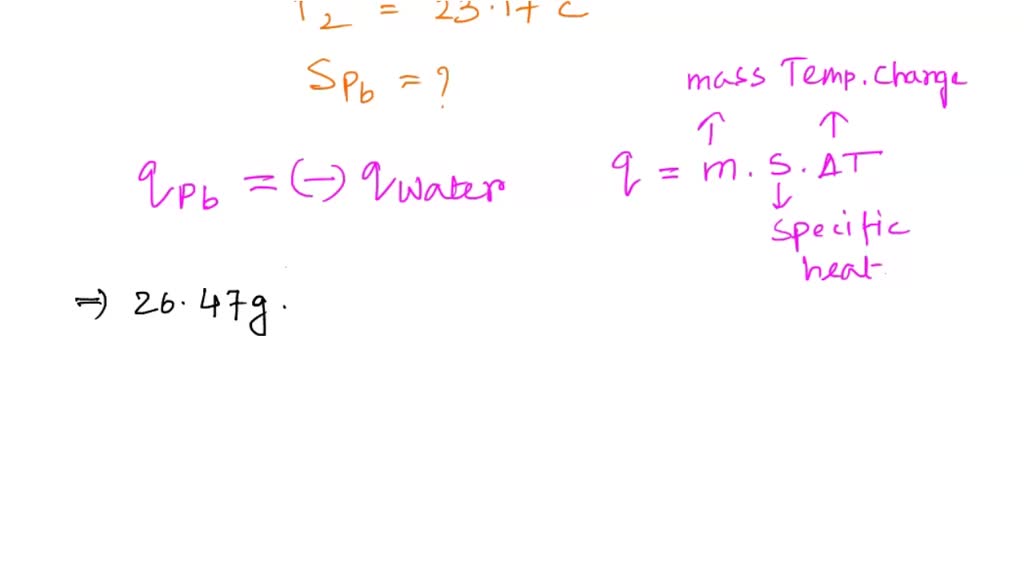 T2 = 23.17 c
SPb = ?
mass Temp. Change
↑ ↑
qPb = (-) qwater
q = m . S . ΔT
↓
Specific
heat
⇒ 26.47g .